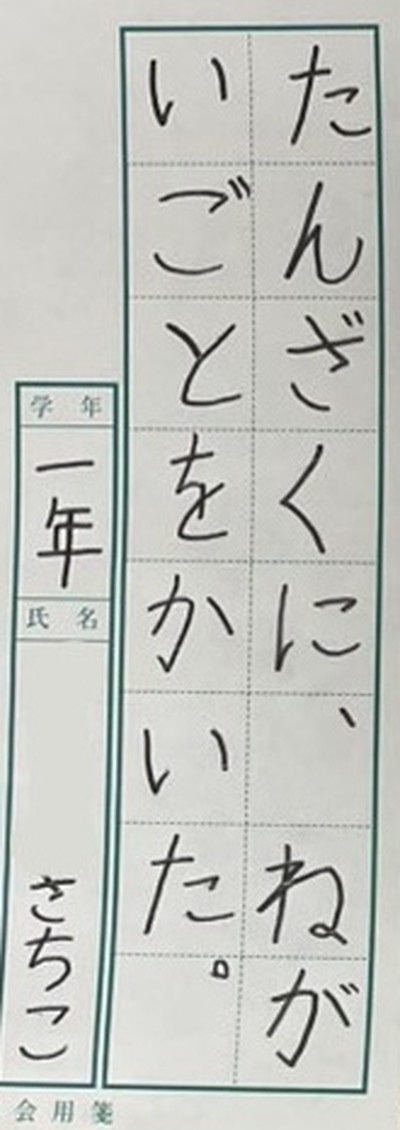 たんざくに、ねが
いごとをかいた。
学年
一年
氏名
さちこ
会用箋